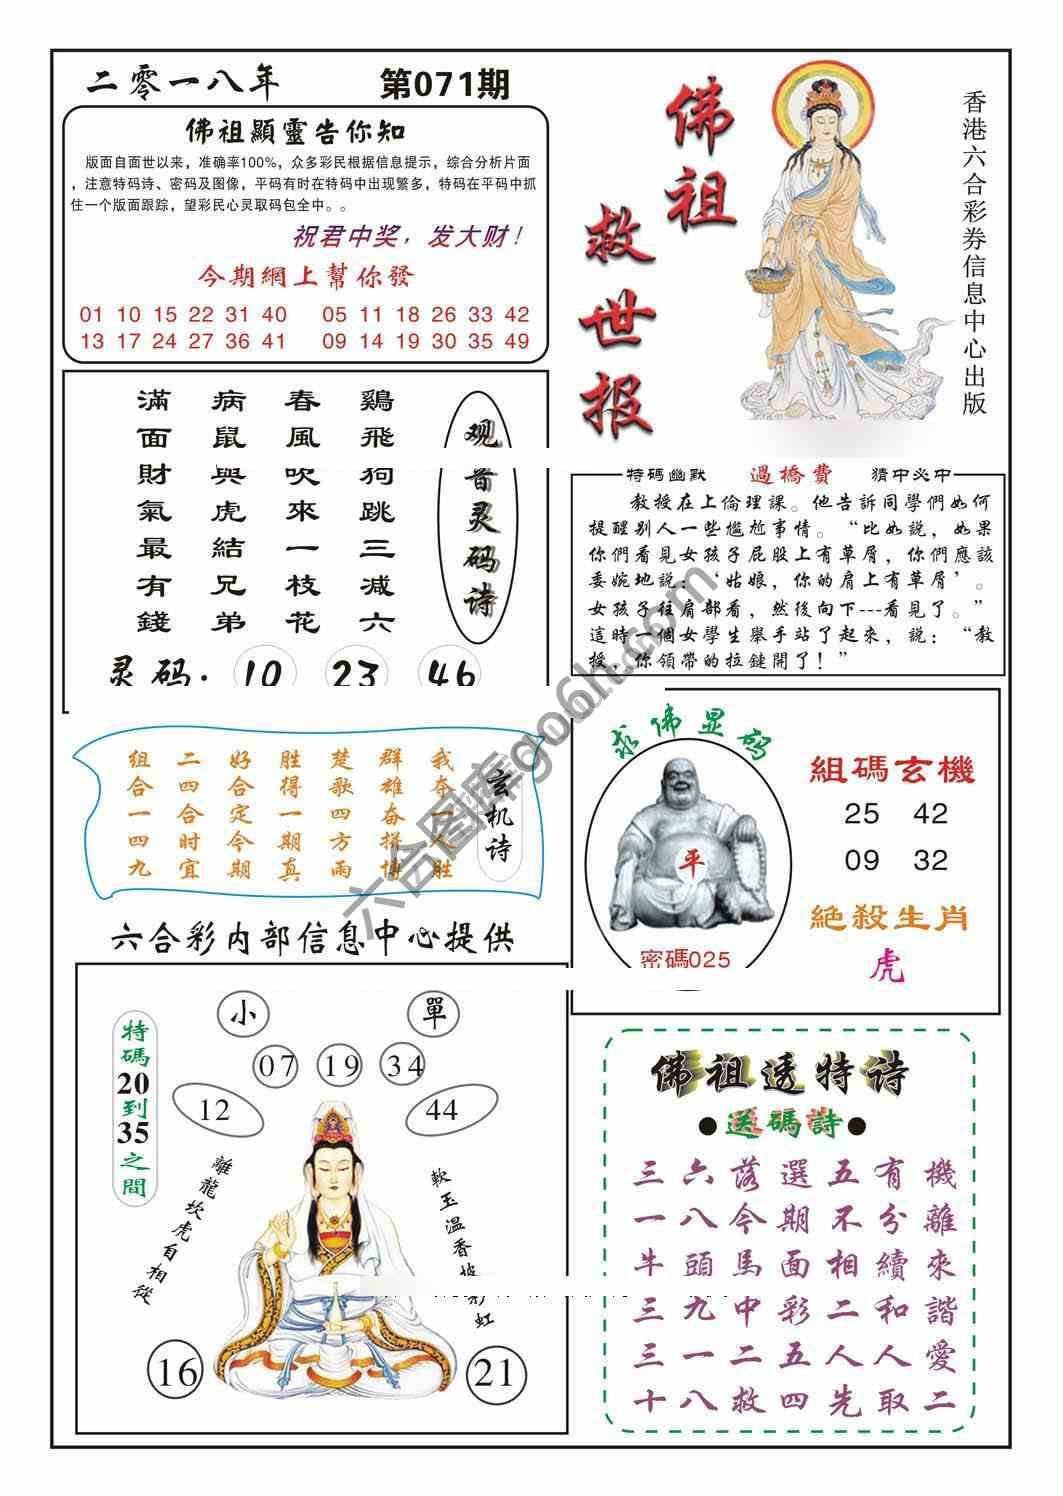 二零一八年
第071期
佛祖顯靈告你知
版面自面世以来，准确率100%，众多彩民根据信息提示，综合分析片面
，注意特码诗、密码及图像，平码有时在特码中出现繁多，特码在平码中抓
住一个版面跟踪，望彩民心灵取码包全中。。
祝君中奖，发大财！
今期網上幫你發
01 10 15 22 31 40 05 11 18 26 33 42
13 17 24 27 36 41 09 14 19 30 35 49
佛祖
救世报
香港六合彩券信息中心出版
观音灵码诗
鷄飛狗跳三减六
春風吹來一枝花
病鼠與虎結兄弟
滿面財氣最有錢
灵码. 10 23 46
特碼幽默 過橋費 猜中必中
教授在上倫理課。他告訴同學們如何
提醒别人一些尴尬事情。“比如説，如果
你們看見女孩子屁股上有草屑，你們應該
委婉地説：‘姑娘，你的肩上有草屑’。
女孩子往肩部看，然後向下---看見了。”
這時一個女學生舉手站了起來，説：“教
授，你領帶的拉鏈開了！”
玄机诗
我夺一人胜
群雄奋拼博
楚歌四方雨
胜得一期真
好合定今期
二四合时宜
组合一四九
求佛显码
平
密碼025
組碼玄機
25 42
09 32
絶殺生肖
虎
六合彩内部信息中心提供
小 單
07 19 34
12 44
特碼20到35之間
離龍坎虎自相從
軟玉温香 彩虹
16 21
佛祖透特诗
●送碼詩●
三六落選五有機
一八今期不分離
牛頭馬面相續來
三九中彩二和諧
三一二五人人愛
十八救四先取二
六合图库go6h.com